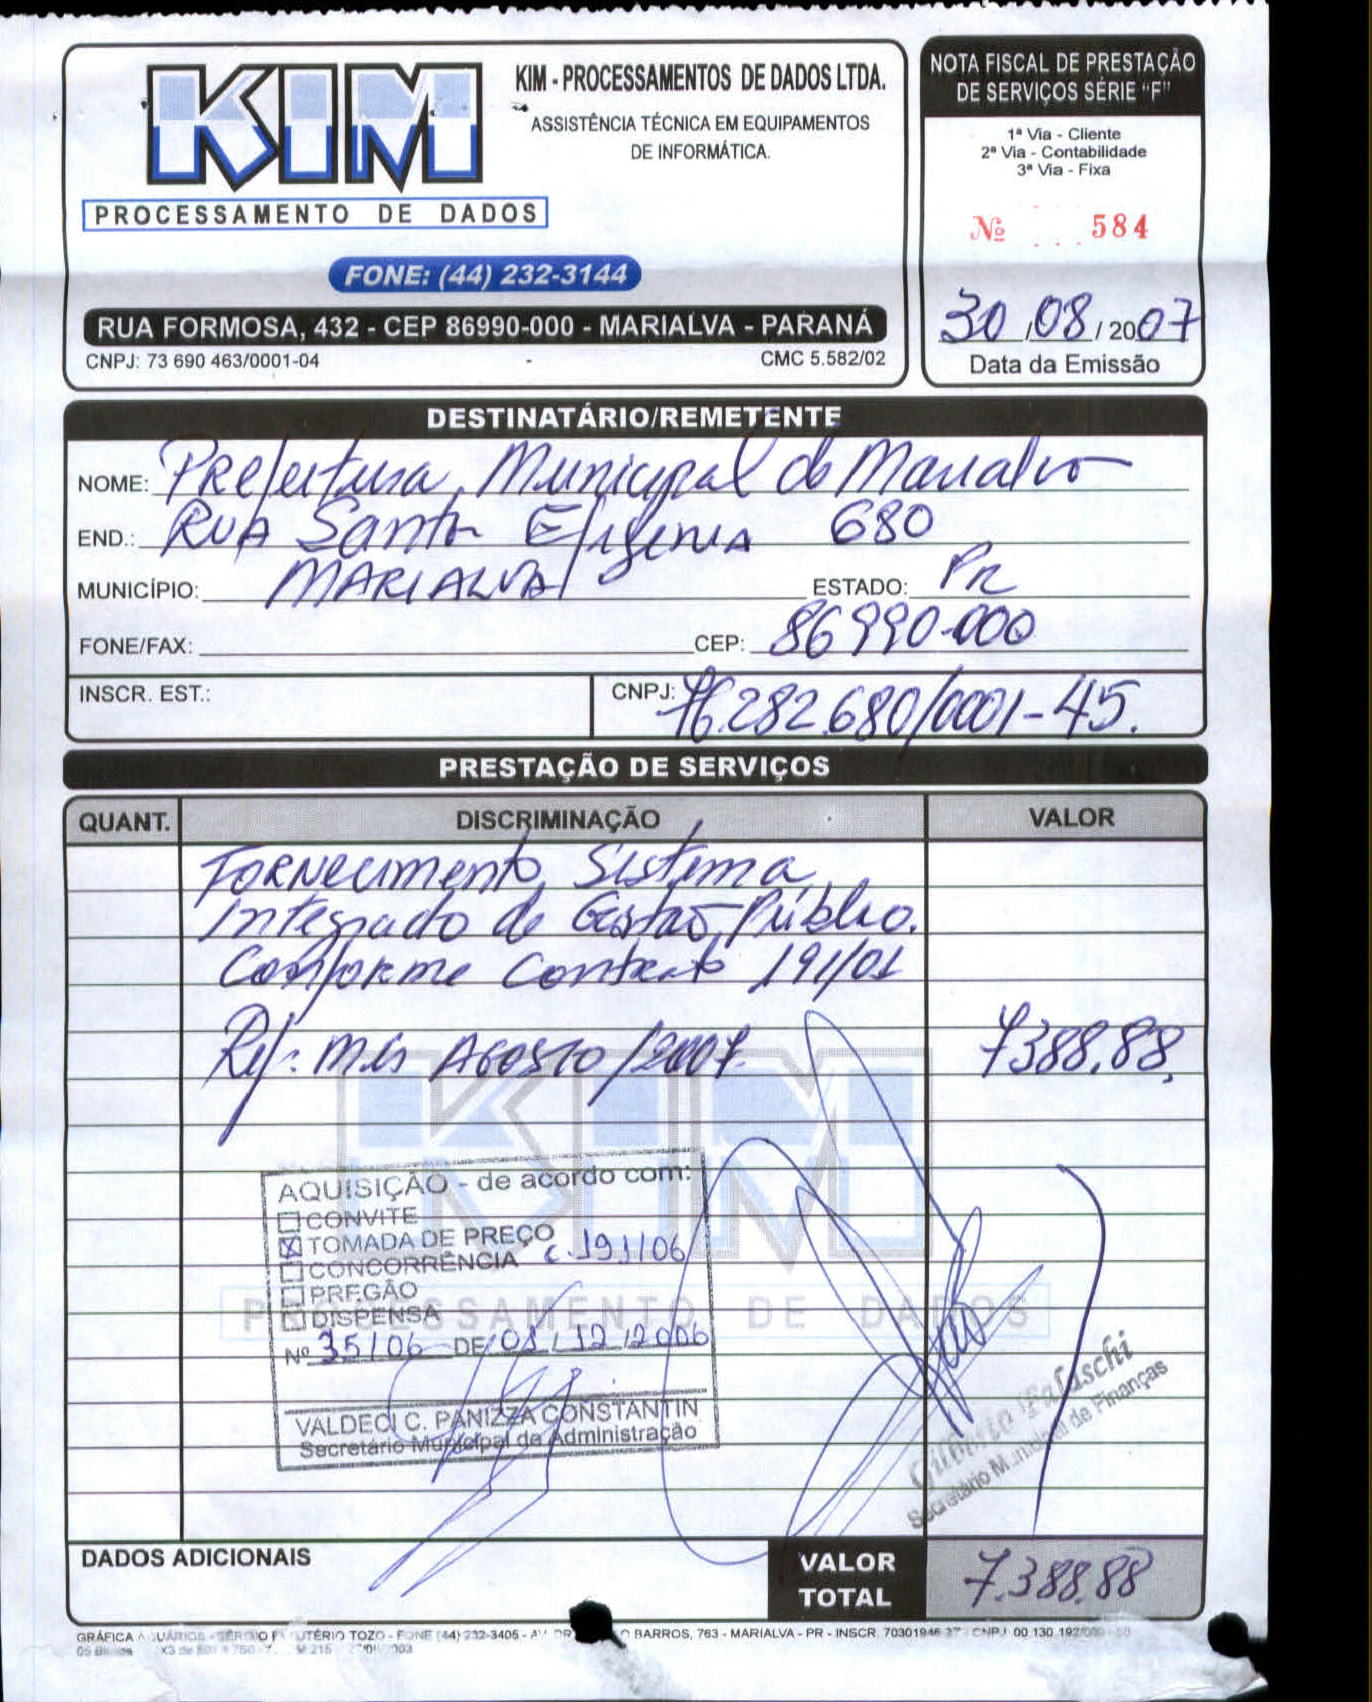 KIM
PROCESSAMENTO DE DADOS
KIM - PROCESSAMENTOS DE DADOS LTDA.
ASSISTÊNCIA TÉCNICA EM EQUIPAMENTOS
DE INFORMÁTICA.
FONE: (44) 232-3144
RUA FORMOSA, 432 - CEP 86990-000 - MARIALVA - PARANÁ
CNPJ: 73 690 463/0001-04 CMC 5.582/02
NOTA FISCAL DE PRESTAÇÃO
DE SERVIÇOS SÉRIE "F"
1ª Via - Cliente
2ª Via - Contabilidade
3ª Via - Fixa
Nº 584
30/08/2007
Data da Emissão
DESTINATÁRIO/REMETENTE
NOME: Prefeitura Municipal de Marialva
END.: Rua Santa Efigenia 680
MUNICÍPIO: MARIALVA ESTADO: PR
FONE/FAX: CEP: 86990-000
INSCR. EST.: CNPJ: 76.282.680/0001-45.
PRESTAÇÃO DE SERVIÇOS
QUANT. DISCRIMINAÇÃO VALOR
Fornecimento Sistema
Integrado de Gestão Público.
Conforme Contrato 191/01
Ref: Mês AGOSTO/2007. 7388,88
KIM
PROCESSAMENTO DE DADOS
AQUISIÇÃO - de acordo com:
CONVITE
TOMADA DE PREÇO
CONCORRÊNCIA c. 191/06
PREGÃO
DISPENSA
Nº 35/06 DE 01/12/2006
VALDECI C. PANIZZA CONSTANTIN
Secretário Municipal de Administração
Secretário Municipal de Finanças
DADOS ADICIONAIS
VALOR TOTAL 7.388,88
GRÁFICA AQUÁRIOS - SÉRGIO TOZO - FONE (44) 232-3405 - BARROS, 763 - MARIALVA - PR - INSCR. 70301946 CNPJ 00 130 192